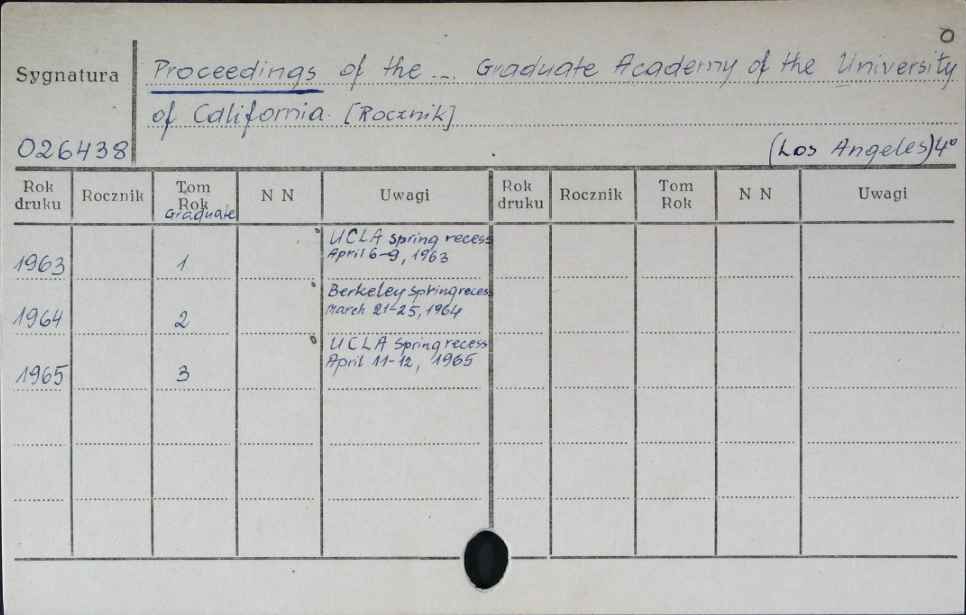 0
Sygnatura
Proceedings of the ... Graduate Academy of the University
of California. [Rocznik]
026438
(Los Angeles) 4°
Rok druku Rocznik Tom Rok N N Uwagi Rok druku Rocznik Tom Rok N N Uwagi
Graduate
UCLA spring recess
1963 1 April 6-9, 1963
Berkeley spring recess
1964 2 March 21-25, 1964
UCLA Spring recess
1965 3 April 11-12, 1965